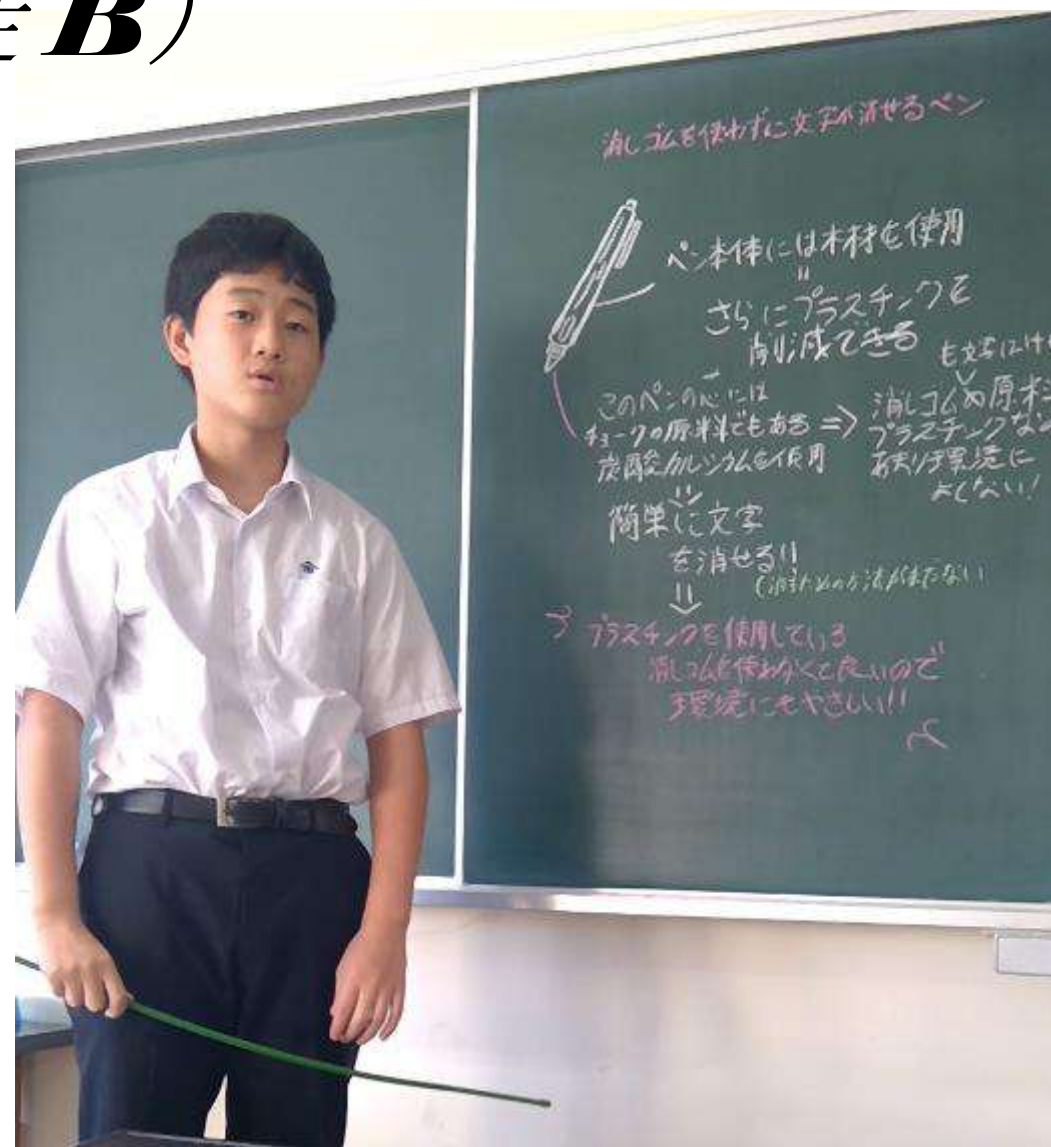 B)
消しゴムを使わずに文字が消せるペン
ペン本体には木材を使用
さらにプラスチックを
削減できる
このペンの芯には
チョークの原料でもある
炭酸カルシウムを使用
⇒
消しゴムの原料
プラスチックなの
あまり環境に
よくない!
簡単に文字
を消せる!!
プラスチックを使用している
消しゴムを使わなくて良いので
環境にもやさしい!!